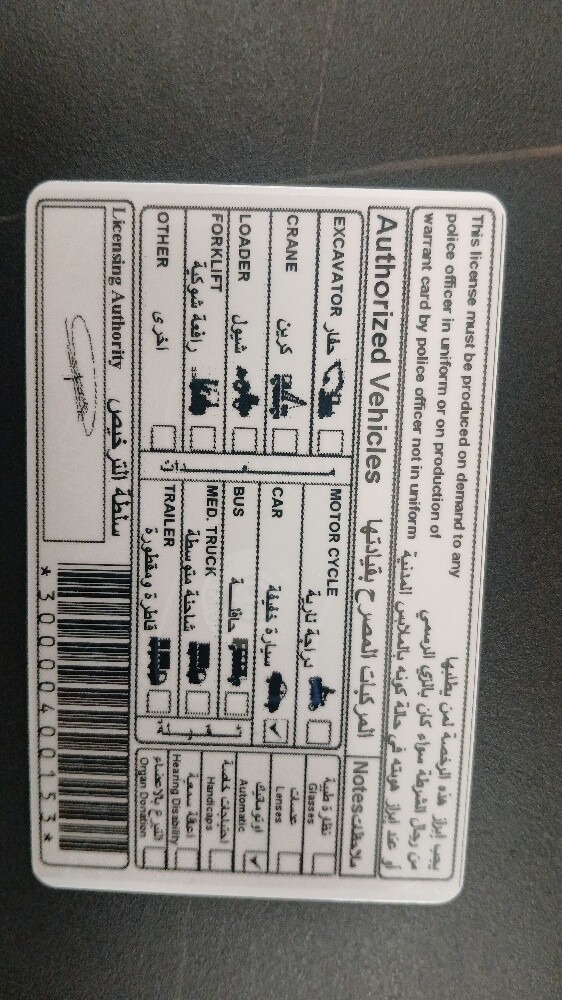 This license must be produced on demand to any
police officer in uniform or on production of
warrant card by police officer not in uniform
يجب ابراز هذه الرخصة لمن يطلبها
من رجال الشرطة سواء كان بالزي الرسمي
أو عند ابراز هويته في حالة كونه بالملابس المدنية
Authorized Vehicles المركبات المصرح بقيادتها
Notes ملاحظات
EXCAVATOR حفار
MOTOR CYCLE
دراجة نارية
نظارة طبية
Glasses
CRANE كرين
CAR سيارة خفيفة
عدسات
Lenses
LOADER شيول
BUS حافلة
اوتوماتيك
Automatic
FORKLIFT
رافعة شوكية
MED. TRUCK
شاحنة متوسطة
احتياجات خاصة
Handicaps
OTHER اخرى
TRAILER
قاطرة ومقطورة
اعاقة سمعية
Hearing Disability
التبرع بالاعضاء
Organ Donation
Licensing Authority سلطة الترخيص
*30000400153*